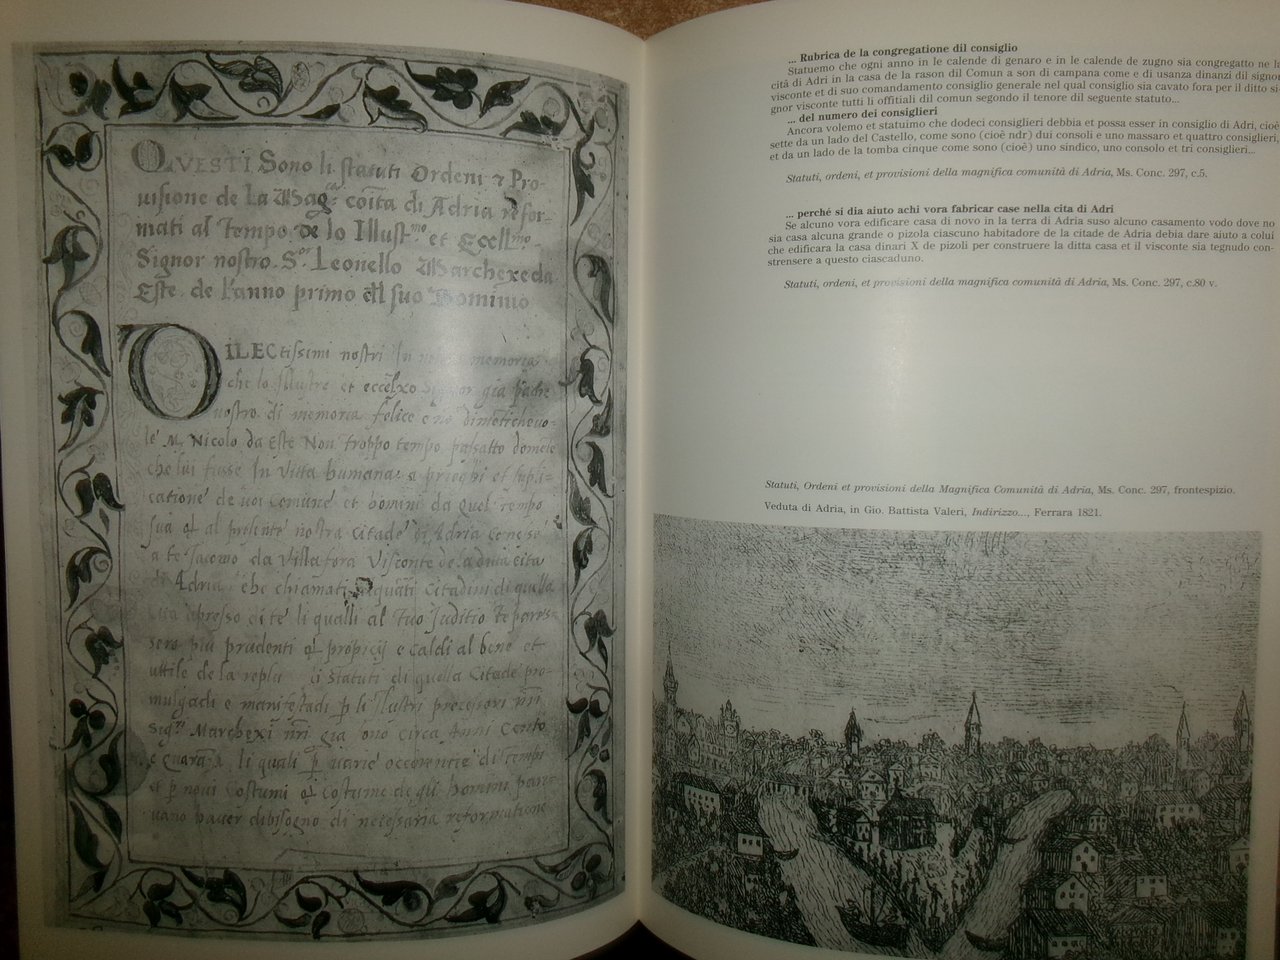 QVESTI Sono li statuti Ordeni & Pro-
uisione de La Mag.ca coita di Adria refor-
mati al Tempo de lo Illust.mo et Eccell.mo
Signor nostro S.or Leonello Marchexe da
Este de l'anno primo del suo Dominio
DILECtissimi nostri memoria
che lo Illustre et eccelxo Signor gia padre
nostro di memoria felice e no dimentichevo-
le M. Nicolo da Este Non troppo tempo passatto
che lui fusse In Vitta humana a prieghi et supli-
catione de uoi Comune et homini da quel tempo
sua al presente nostra Citade di Adria
a te Jacomo da Villafora Visconte de
di Adria che chiamati Citadini di quella
apresso di te li qualli al Tuo Juditio te pares-
sero piu prudenti propicij e caldi al bene et
uttile de la statuti di quella Citade pro-
mulgadi e manifestadi li Illustri precessori
Sig.ri Marchexi gia Circa Anni Cento
e Quaranta li quali uarie occorentie di tempi
et noui costumi costume de gli homini
uano hauer dibisogno di necessaria reformatione
... Rubrica de la congregatione dil consiglio
Statuemo che ogni anno in le calende di genaro e in le calende de zugno sia congregatto ne la
cità di Adri in la casa de la rason dil Comun a son di campana come e di usanza dinanzi dil signor
visconte et di suo comandamento consiglio generale nel qual consiglio sia cavato fora per il ditto si-
gnor visconte tutti li offitiali dil comun segondo il tenore dil seguente statuto...
... del numero dei consiglieri
Ancora volemo et statuimo che dodeci consiglieri debbia et possa esser in consiglio di Adri, cioè
sette da un lado del Castello, come sono (cioè ndr) dui consoli e uno massaro et quattro consiglieri,
et da un lado de la tomba cinque come sono (cioè) uno sindico, uno consolo et tri consiglieri...
Statuti, ordeni, et provisioni della magnifica comunità di Adria, Ms. Conc. 297, c.5.
... perché si dia aiuto achi vora fabricar case nella cita di Adri
Se alcuno vora edificare casa di novo in la terra di Adria suso alcuno casamento vodo dove no
sia casa alcuna grande o pizola ciascuno habitadore de la citade de Adria debia dare aiuto a colui
che edificara la casa dinari X de pizoli per construere la ditta casa et il visconte sia tegnudo con-
strensere a questo ciascaduno.
Statuti, ordeni, et provisioni della magnifica comunità di Adria, Ms. Conc. 297, c.80 v.
Statuti, Ordeni et provisioni della Magnifica Comunità di Adria, Ms. Conc. 297, frontespizio.
Veduta di Adria, in Gio. Battista Valeri, Indirizzo..., Ferrara 1821.